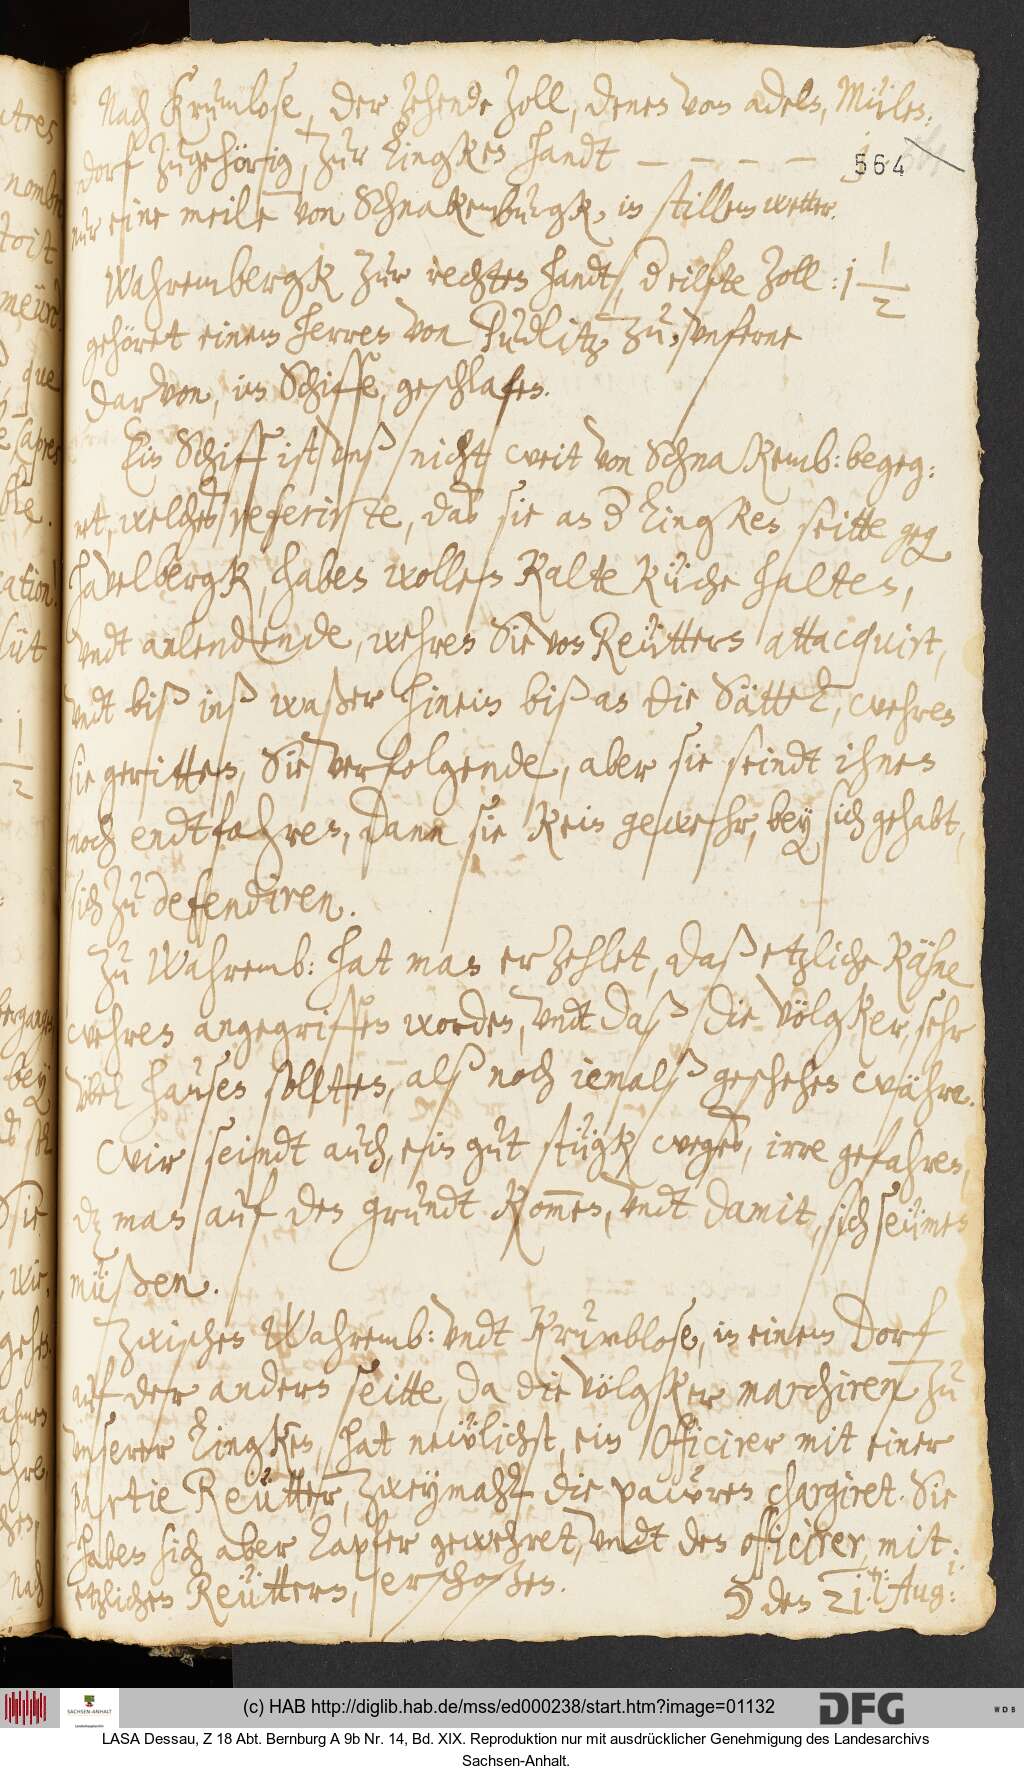 Nach Krumlose, der zehende Zoll, denen von adels, Mülen:
dorf zugehörig, zur Lingken handt — — — — j
564
nur eine meile von Schnakemburgk, in stillem wetter.
Wahrembergk zur rechten handt, d eilfte Zoll : j 1/2
gehöret einem Herren von Pudlitz zu, unferne
darvon, im Schiffe, geschlafen.
Ein Schiff ist unß nicht weit von Schnakemb: begeg:
net, welches referirte, das sie an d Lingken seitte geg
Havelbergk, haben wollen Kalte Küche halten,
undt anlendende, wehren Sie von Reüttern attacquirt,
undt biß inß waßer hinein biß an die Sättel, wehren
sie geritten, Sie verfolgende, aber sie seindt ihnen
noch endtfahren, dann sie Kein gewehr, bey sich gehabt,
sich zu defendiren.
Zu Wahremb: hat man erzehlet, daß etzliche Kähne
wehren angegriffen worden, undt daß die Völgker, sehr
übel hausen sollten, alß noch iemalß geschehen währe.
Wir seindt auch, ein gut stügk weges, irre gefahren,
dz man auf den grundt kom̄en, undt damit, sich seümen
müßen.
Zwischen Wahremb: undt Krumblose, in einem Dorf
auf der andern seitte, da die Völgker marchiren zu
unserer Lingken, hat neẅlichst, ein Officirer mit einer
partie Reütter, zweymahl die paẅren chargiret. Sie
haben sich aber tapfer gewehret, undt den officirer, mit
etzlichen Reüttern, erschoßen.
☽ den 21.ten Aug:
(c) HAB http://diglib.hab.de/mss/ed000238/start.htm?image=01132
SACHSEN-ANHALT
DFG
WDB
LASA Dessau, Z 18 Abt. Bernburg A 9b Nr. 14, Bd. XIX. Reproduktion nur mit ausdrücklicher Genehmigung des Landesarchivs
Sachsen-Anhalt.